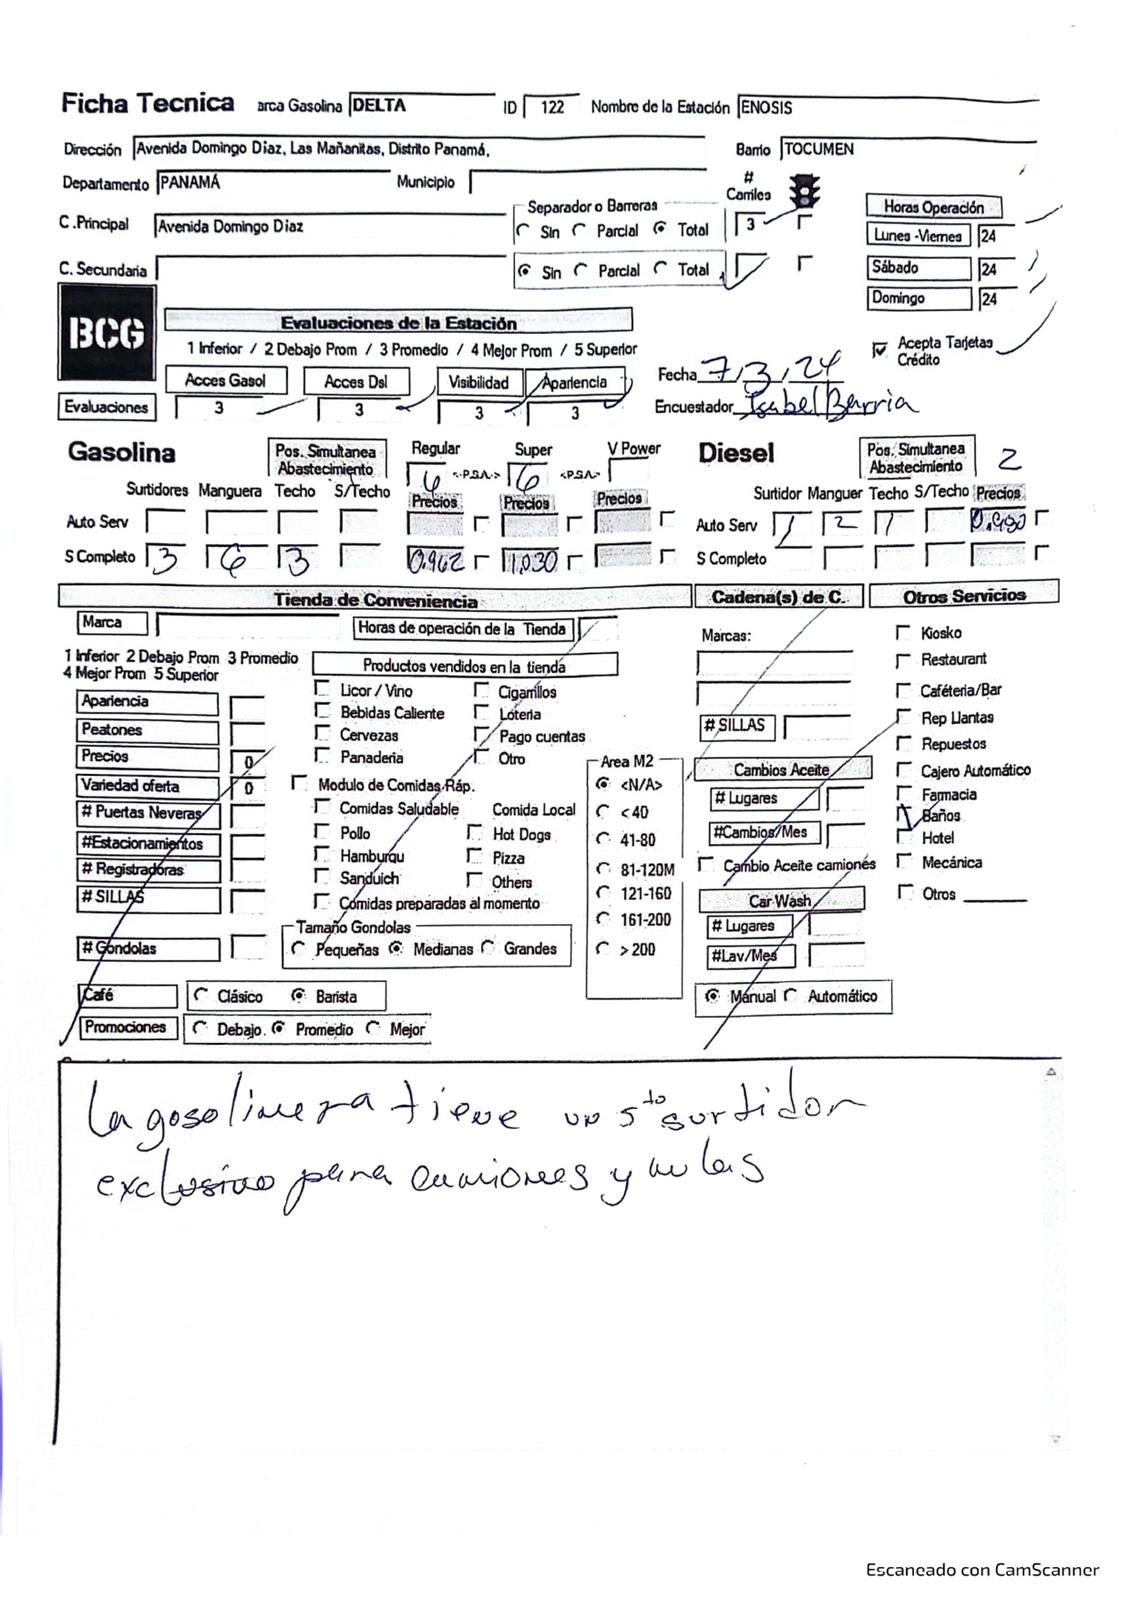 Ficha Tecnica arca Gasolina DELTA ID 122 Nombre de la Estación ENOSIS
Dirección Avenida Domingo Díaz, Las Mañanitas, Distrito Panamá, Barrio TOCUMEN
Departamento PANAMÁ Municipio # Carriles
C .Principal Avenida Domingo Díaz Separador o Barreras Sin Parcial Total 3
C. Secundaria Sin Parcial Total
Horas Operación
Lunes -Viernes 24
Sábado 24
Domingo 24
Acepta Tarjetas Crédito
BCG
Evaluaciones de la Estación
1 Inferior / 2 Debajo Prom / 3 Promedio / 4 Mejor Prom / 5 Superior
Acces Gasol Acces Dsl Visibilidad Apariencia
Evaluaciones 3 3 3 3
Fecha 7/3/24
Encuestador Isabel Barria
Gasolina Pos. Simultanea Abastecimiento Regular Super V Power
6 <-P.S.A.-> 6 <-P.S.A.->
Surtidores Manguera Techo S/Techo Precios Precios Precios
Auto Serv
S Completo 3 6 3 0.962 1,030
Diesel Pos. Simultanea Abastecimiento 2
Surtidor Manguer Techo S/Techo Precios
Auto Serv 1 2 1
S Completo
Tienda de Conveniencia
Marca Horas de operación de la Tienda
1 Inferior 2 Debajo Prom 3 Promedio
4 Mejor Prom 5 Superior
Apariencia
Peatones
Precios 0
Variedad oferta 0
# Puertas Neveras
#Estacionamientos
# Registradoras
# SILLAS
# Gondolas
Productos vendidos en la tienda
Licor / Vino Cigarrillos
Bebidas Caliente Loteria
Cervezas Pago cuentas
Panaderia Otro
Modulo de Comidas Ráp.
Comidas Saludable Comida Local
Pollo Hot Dogs
Hamburqu Pizza
Sanduich Others
Comidas preparadas al momento
Tamaño Gondolas
Pequeñas Medianas Grandes
Area M2
<N/A>
< 40
41-80
81-120M
121-160
161-200
> 200
Café Clásico Barista
Promociones Debajo. Promedio Mejor
Cadena(s) de C.
Marcas:
# SILLAS
Cambios Aceite
# Lugares
#Cambios/Mes
Cambio Aceite camiones
Car Wash
# Lugares
#Lav/Mes
Manual Automático
Otros Servicios
Kiosko
Restaurant
Caféteria/Bar
Rep Llantas
Repuestos
Cajero Automático
Farmacia
Baños
Hotel
Mecánica
Otros
La gasolinera tiene un 5to surtidor
exclusivo para camiones y mulas
Escaneado con CamScanner